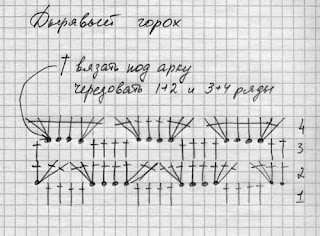 Дырявый горох
† вязать под арку
чередовать 1+2 и 3+4 ряды
4
3
2
1